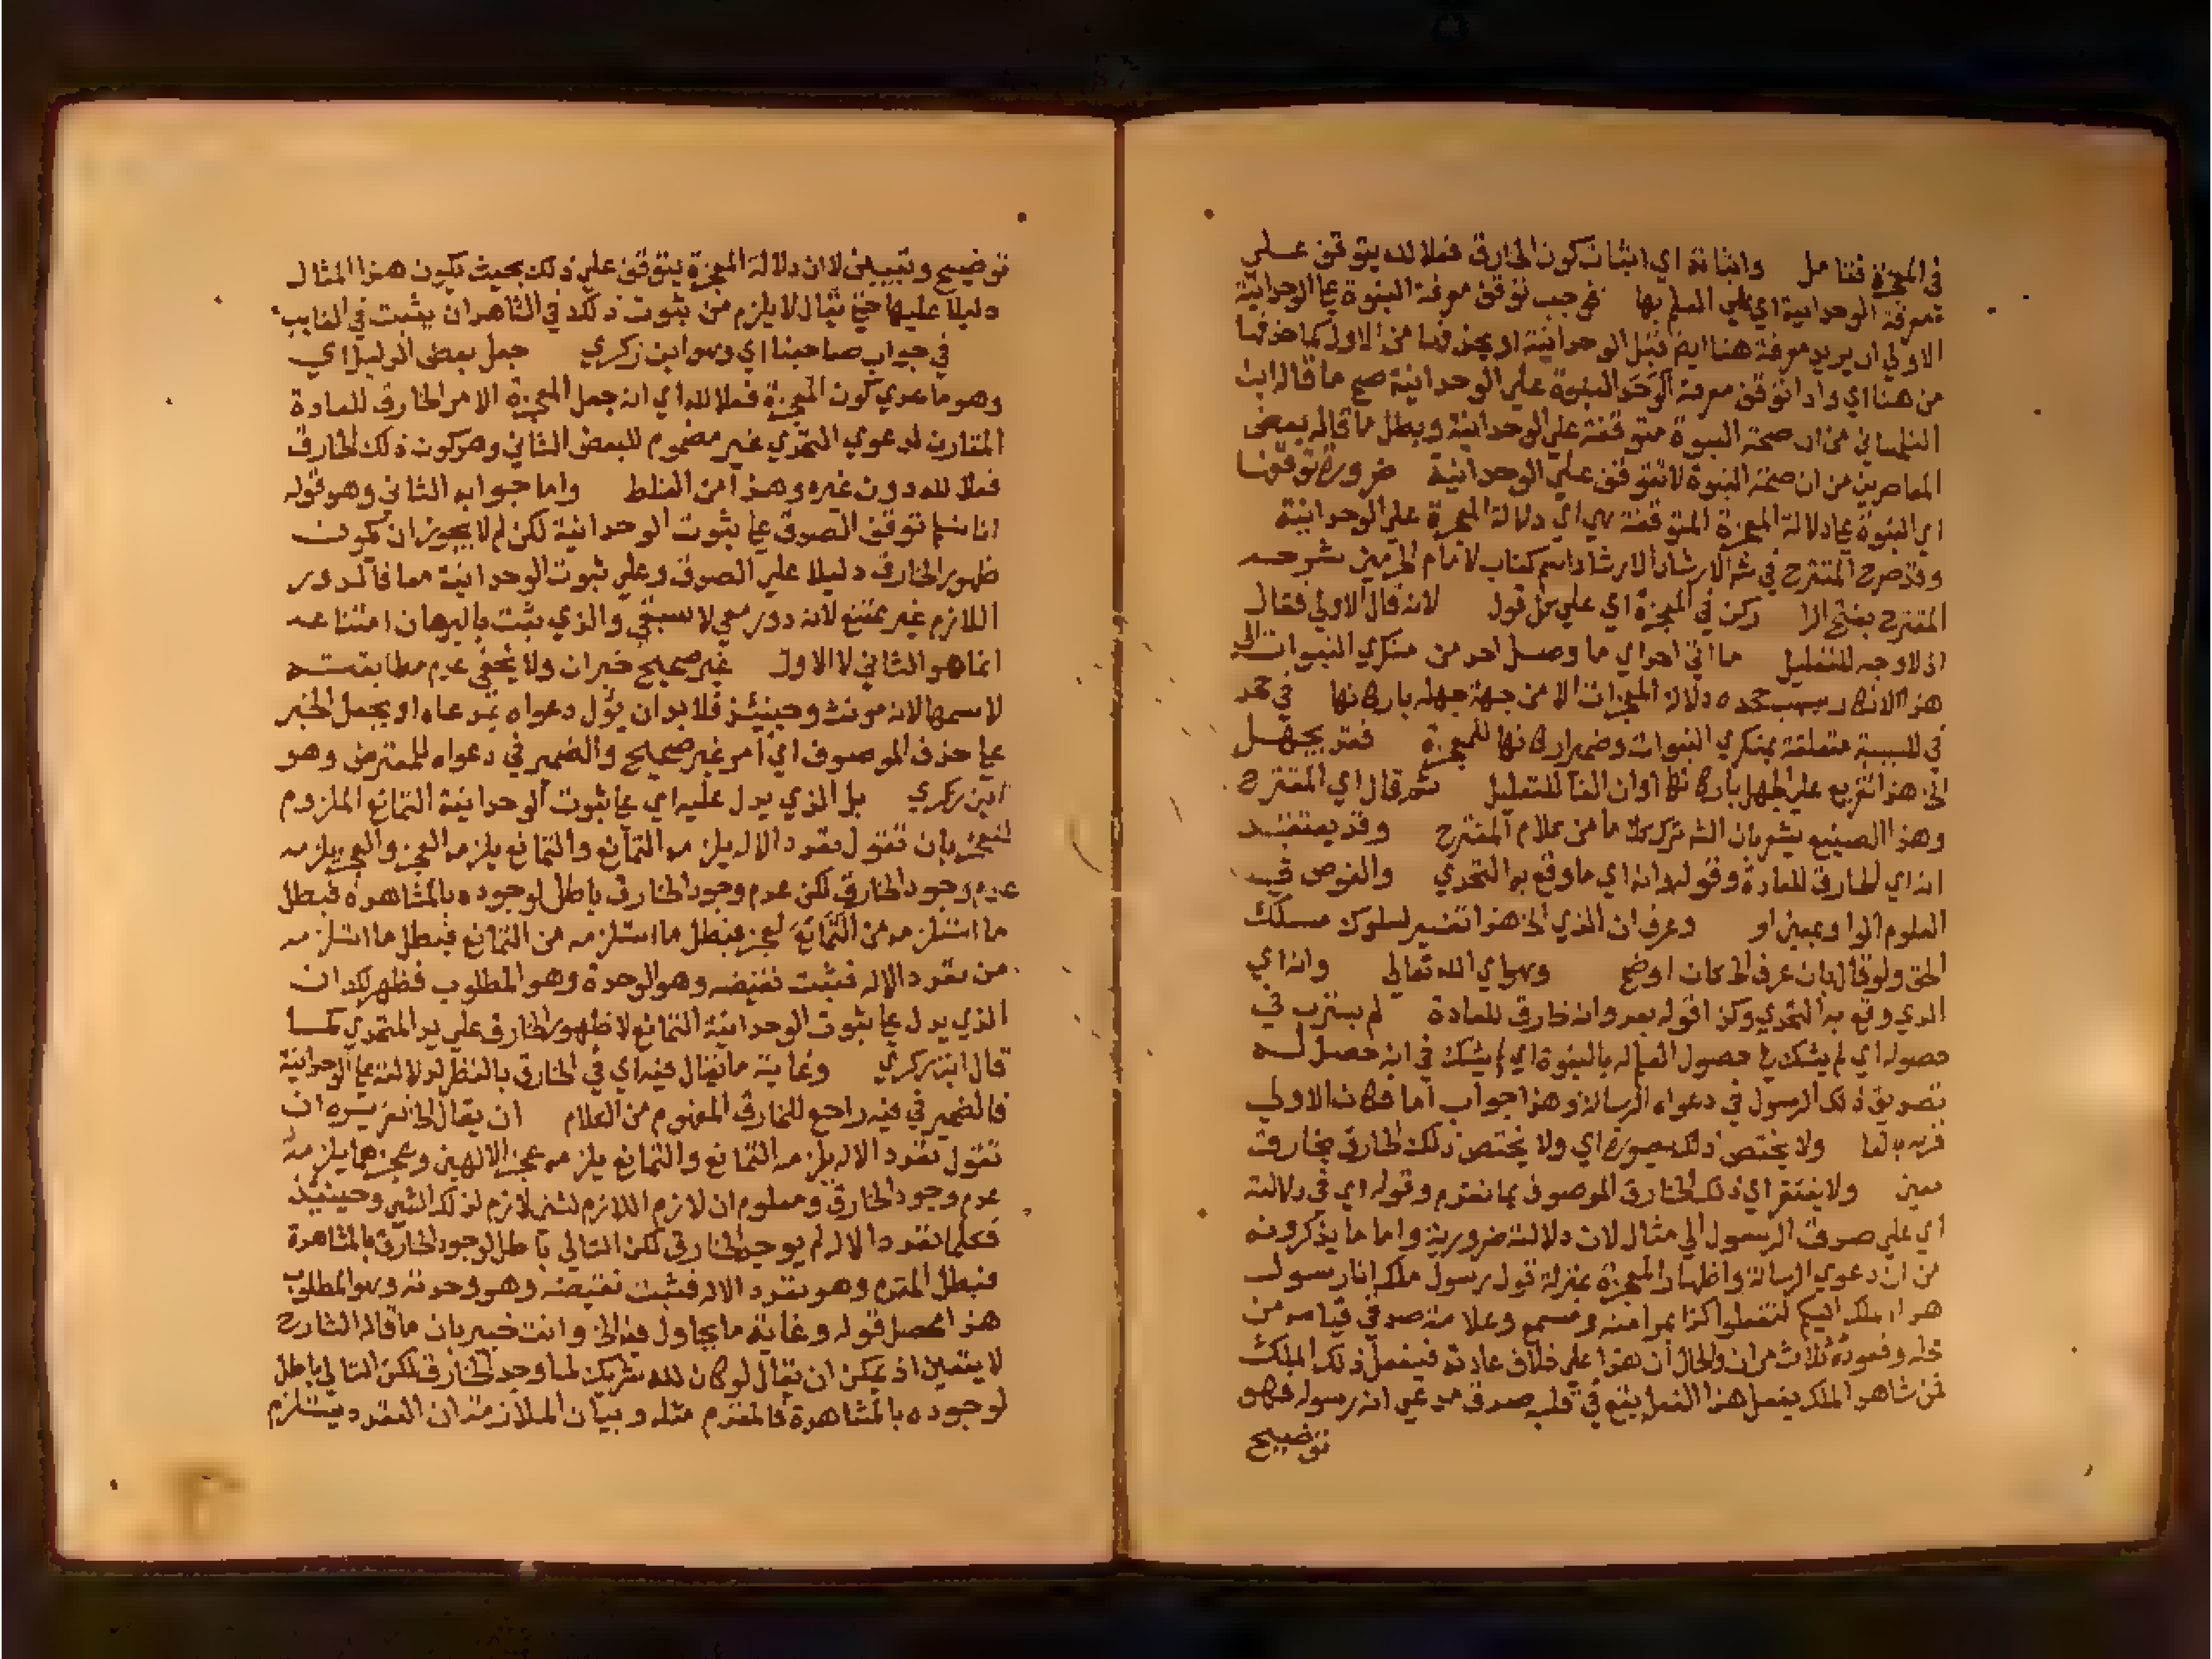 في المعجزة فتامل واثباته اي اثبات كون الخارق فعلا لله يتوقف علي
معرفة الوحدانية اي علي العلم بها فحجب توقف معرفة النبوة علي الوحدانية
الاولي ان يريد معرفة هنا ايضا قبل الوحدانية او يحذفها من الاول كما حذفها
من هنا اي واذا توقف معرفة النبوة علي الوحدانية صح ما قاله ابن
التلمساني من ان صحة النبوة متوقفة علي الوحدانية وبطل ما قاله بعض
المعاصرين من ان صحة النبوة لا تتوقف علي الوحدانية ضرورة توقفها
اي النبوة علي دلالة المعجزة المتوقفة هي اي دلالة المعجزة علي الوحدانية
وقد صرح المقترح في شرح الارشاد الارشاد اسم كتاب لامام الحرمين شرحه
المقترح بفتح الرا ركن في المعجزة اي علي كل قول لانه قال الاولي فقال
اذ لا وجه للتعليل ما اتي احد اي ما وصل احد من منكري النبوات الي
هذا الانكار بسبب جحده دلالة المعجزات الا من جهة جهله باركانها في جحد
في للسببية متعلقة بمنكري النبوات وضمير اركانها للمعجزة فقد يجهل
الخ هذا تفريع علي الجهل باركانها او ان الفا للتعليل ثم قال اي المقترح
وهذا الصنيع يشعر بان الشارح ترك كلاما من كلام المقترح وقد يعتقد
انه اي الخارق للعادة وقوله وانه اي ما وقع به التحدي والغوص في
العلوم الواو بمعني او وعرف ان الذي الخ هذا تفسير لسلوك مسلك
الحق ولو قال بان عرف الخ كان اوضح وهو اي الله تعالي وانه اي
الذي وقع به التحدي وكذا قوله بعد وانه خارق للعادة لم يسترب في
حصوله اي لم يشك في حصول العلم له بالنبوة اي لم يشك في انه حصل له
تصديق ذلك الرسول في دعواه الرسالة وهذا جواب اما فكان الاولي
قرنه بالفا ولا يختص ذلك بصورة اي ولا يختص ذلك الخارق بخارق
معين ولا يفتقر اي ذلك الخارق الموصوف بما تقدم وقوله اي في دلالته
اي علي صدق الرسول الي مثال لان دلالته ضرورية واما ما يذكرونه
من ان دعوي الرسالة واظهار المعجزة بمنزلة قول رسول ملك انا رسول
هذا الملك اليكم لتفعلوا كذا بمرا منه ومسمع وعلامة صدقي قيامه من
محله وقعوده ثلاث مرات والحال ان هذا علي خلاف عادته فيفعل ذلك الملك
فمن شاهد الملك يفعل هذا الفعل يقع في قلبه صدق مدعي انه رسوله فهو
توضيح
توضيح وتبيين لا ان دلالة المعجزة يتوقف علي ذلك بحيث يكون هذا المثال
دليلا عليها حتي يقال لا يلزم من ثبوت ذلك في الشاهد ان يثبت في الغايب
في جواب صاحبنا اي وهو ابن زكري جعل بعض الدليل اي
وهو ما عدي كون المعجزة فعلا لله اي انه جعل المعجزة الامر الخارق للعادة
المقارن لدعوي التحدي غير مضموم للبعض الثاني وهو كون ذلك الخارق
فعلا لله دون غيره وهذا من الغلط واما جوابه الثاني وهو قوله
انا نسلم توقف الصدق علي ثبوت الوحدانية لكن لم لا يجوز ان يكون
ظهور الخارق دليلا علي الصدق وعلي ثبوت الوحدانية معا فالدور
اللازم غير ممتنع لانه دور معي لا سبقي والذي يثبت بالبرهان امتناعه
انما هو الثاني لا الاول غير صحيح خبر ان ولا يخفي عدم مطابقته
لاسمها لانه مونث وحينئذ فلا بد ان يؤل دعواه بمدعاه او يجعل الخبر
علي حذف الموصوف اي امر غير صحيح والضمير في دعواه للمعترض وهو
ابن زكري بل الذي يدل عليه اي علي ثبوت الوحدانية التمانع الملزوم
للعجز بان تقول تعدد الاله يلزمه التمانع والتمانع يلزمه العجز والعجز يلزمه
عدم وجود الخارق لكن عدم وجود الخارق باطل لوجوده بالمشاهدة فبطل
ما استلزمه من العجز فبطل ما استلزمه من التمانع فبطل ما استلزمه
من تعدد الاله فثبت نقيضه وهو الوحدة وهو المطلوب فظهر لك ان
الذي يدل علي ثبوت الوحدانية التمانع لا ظهور الخارق علي يد المتحدي كما
قال ابن زكري وغاية ما يقال فيه اي في الخارق بالنظر لدلالته علي الوحدانية
فالضمير في فيه راجع للخارق المفهوم من الكلام ان يقال الخ تقريره ان
تقول تعدد الاله يلزمه التمانع والتمانع يلزمه عجز الالهين وعجزهما يلزمه
عدم وجود الخارق ومعلوم ان لازم اللازم لشي لازم لذلك الشي وحينئذ
فكلما تعدد الاله لم يوجد الخارق لكن التالي باطل لوجود الخارق بالمشاهدة
فبطل المقدم وهو تعدد الاله فثبت نقيضه وهو وحدته وهو المطلوب
هذا محصل قوله وغاية ما يحاول فيه الخ وانت خبير بان ما قاله الشارح
لا يتعين اذ يمكن ان يقال لو كان لله شريك لما وجد الخارق لكن التالي باطل
لوجوده بالمشاهدة فالمقدم مثله وبيان الملازمة ان التعدد يستلزم